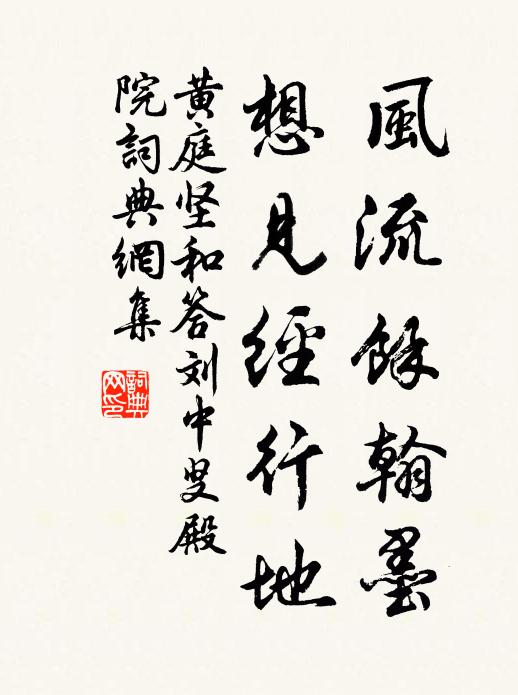 風流餘翰墨
想見經行地
黄庭坚和答刘中叟殿
院詞典網集
詞典
网印